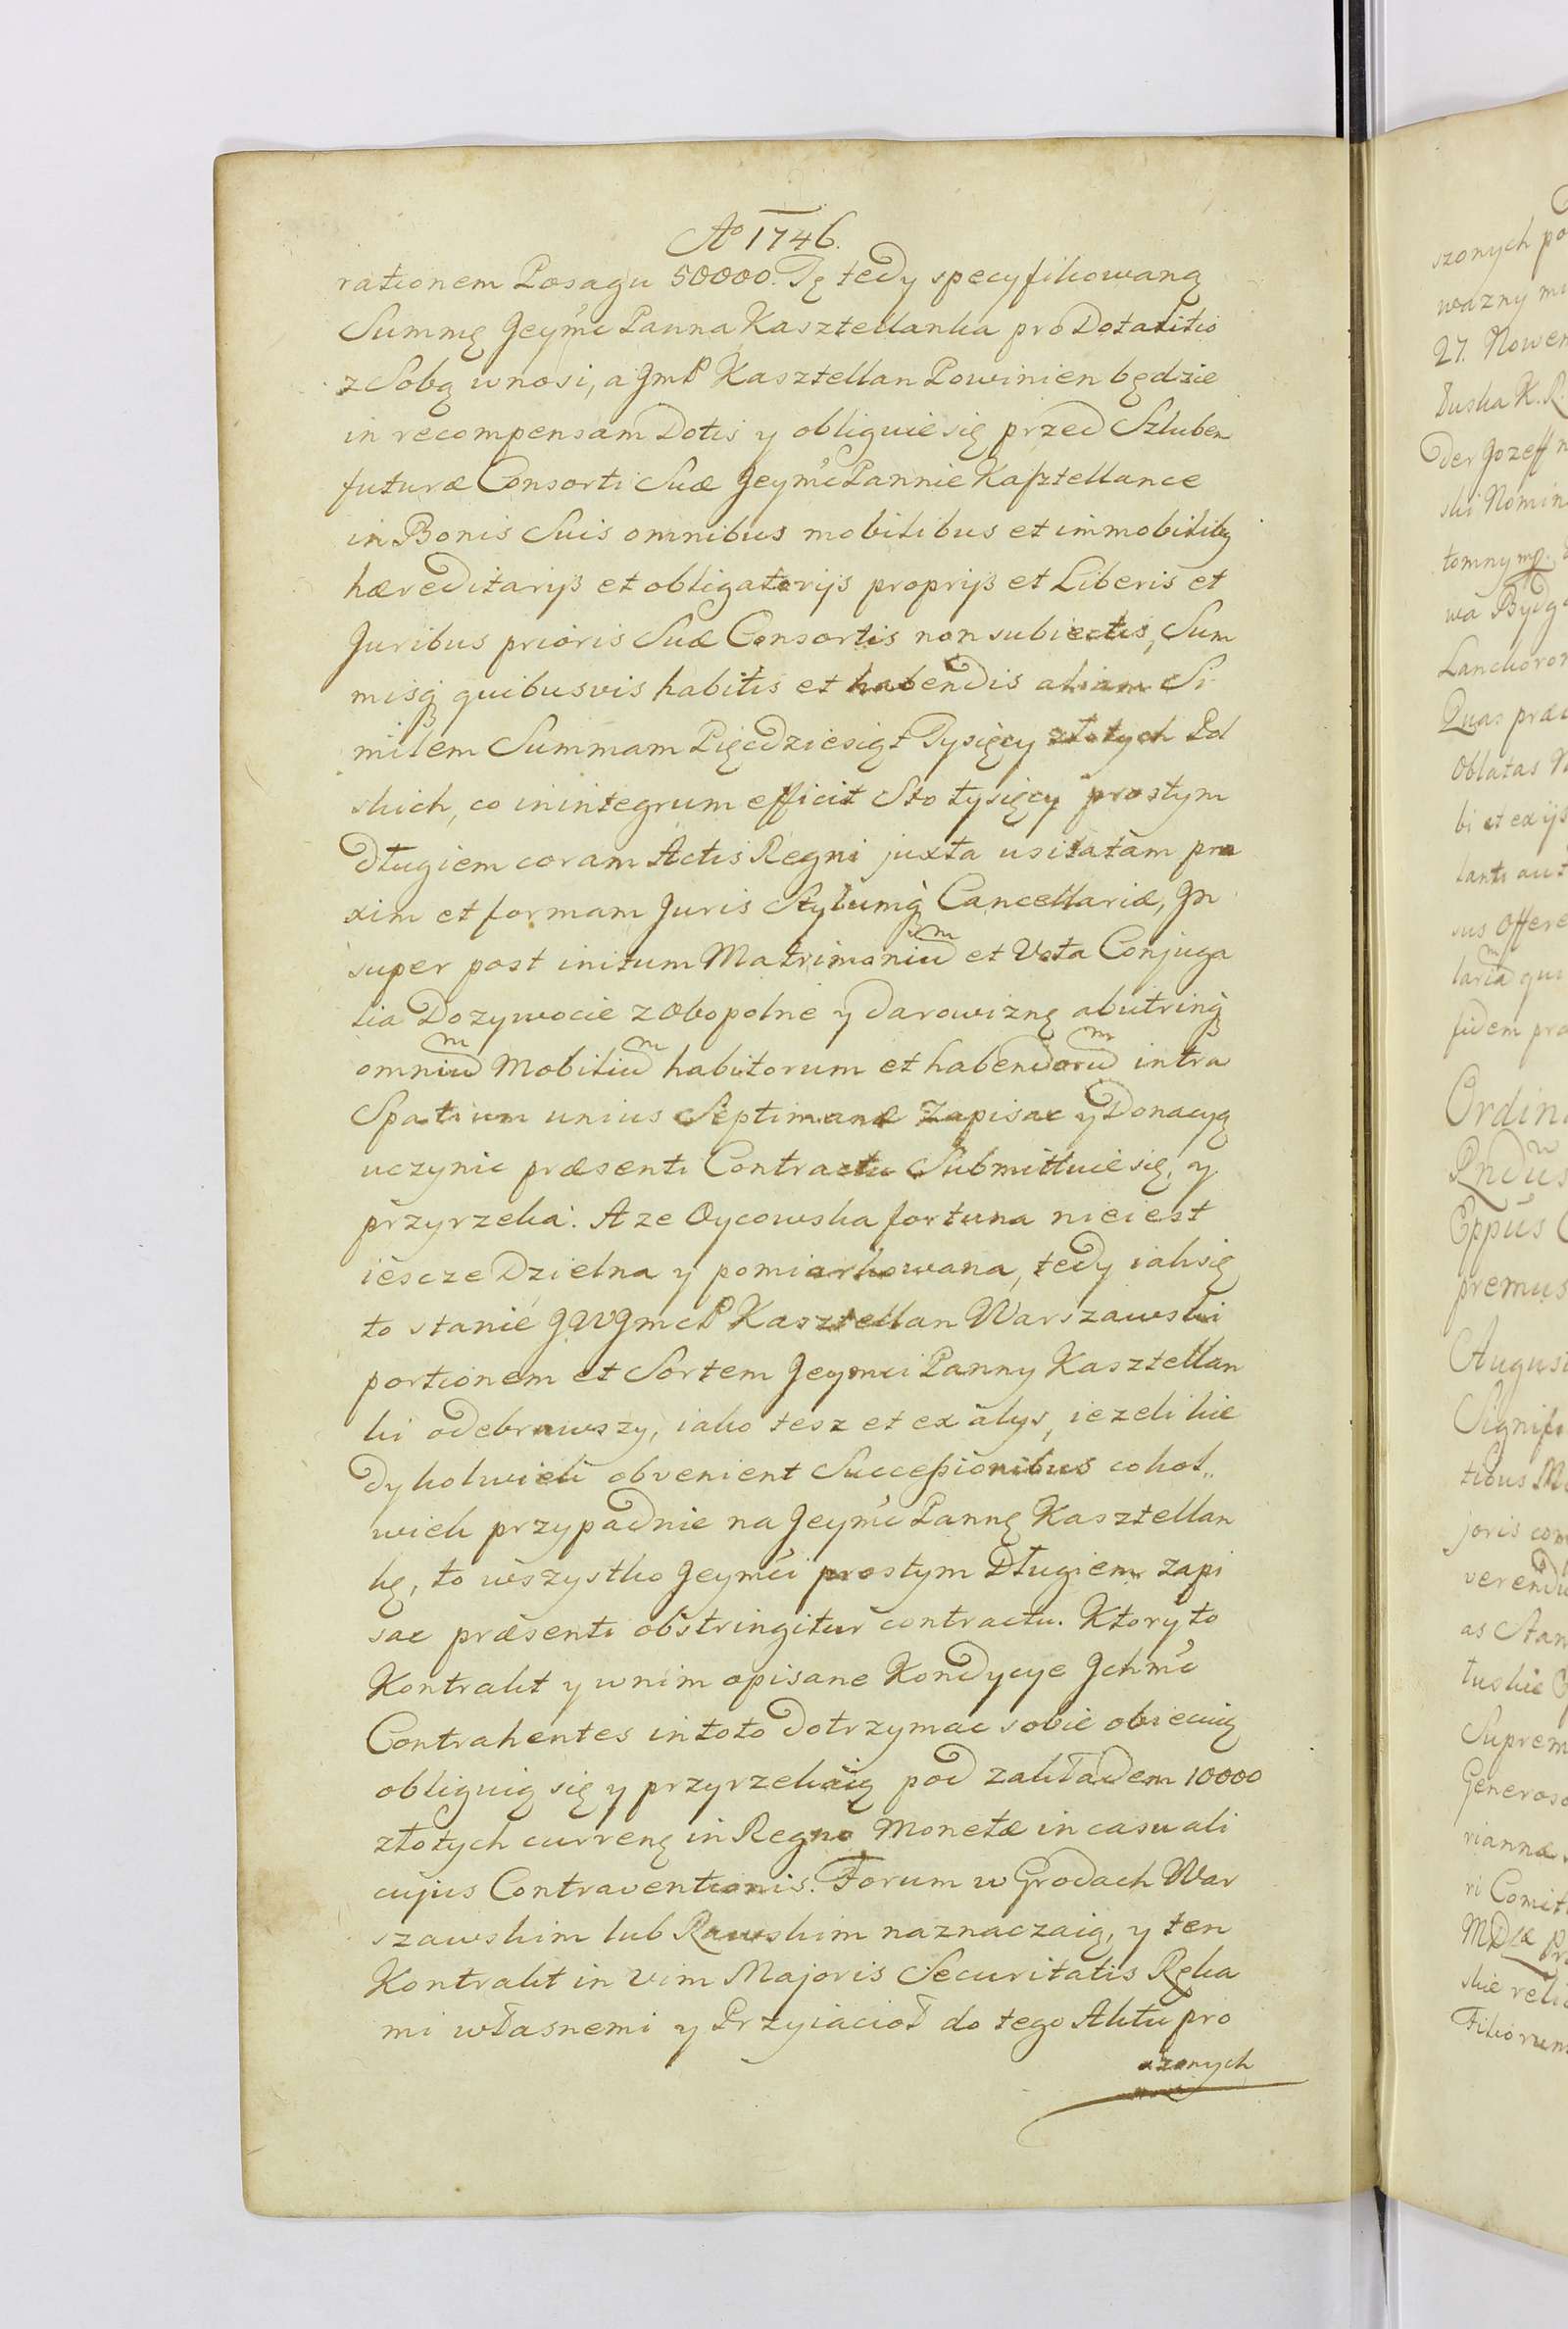 Aº 1746.
rationem Posagu 50000. Tę tedy specyfikowaną
Summę Jeymć Panna Kasztellanka pro Dotalitio
z Sobą wnosi, a JmP Kasztellan Powinien będzie
in recompensam Dotis y obliguie się przed Szluben
futuræ Consorti Suæ Jeymć Pannie Kasztellance
in Bonis Suis omnibus mobilibus et immobilibq
hæreditarijs et obligatorijs proprijs et Liberis et
Juribus prioris Suæ Consortis non subiectis, Sum
misq quibusvis habitis et habendis aliam Si
milem Summam Pięcdziesiąt Tysięcy złotych Pol
skich, co in integrum efficit Sto tysięcy prostym
długiem coram Actis Regni juxta usitatam pra
xim et formam Juris Stylumq Cancellariæ, In
super post initum Matrimoniũm et Vota Conjuga
lia Dozywocie zobopolne y darowiznę abutrinq
omniũm Mobiliũm habitorum et habendorũm intra
Spatium unius Septimanæ Zapisac y Donacyą
uczynic præsenti Contractu Submittuie się, y
przyrzeka. A ze Oycowska fortuna nieiest
iescze Dzielna y pomiarkowana, tedy iak się
to stanie JWJmcP Kasztellan Warszawski
portionem et Sortem Jeymci Panny Kasztellan
ki odebrawszy, iako tesz et ex alys, iezeli kie
dykolwiek obvenient Successionibus cokol„
wiek przypadnie na Jeymć Pannę Kasztellan
kę, to wszystko Jeymći prostym Długiem zapi
sac præsenti obstringitur contractu. Ktory to
Kontrakt y wnim opisane Kondycye Ichmć
Contrahentes in toto dotrzymac sobie obiecuią
obliguią się y przyrzekaią pod zakładem 10000
złotych currenę in Regno Monetæ in casu ali
cujus Contraventionis. Forum w Grodach War
szawskim lub Rawskim naznaczaią, y ten
Kontrakt in vim Majoris Securitatis Ręka
mi własnemi y Przyiacioł do tego Aktu pro
szonych
szonych po
wazny
27. Nowem
Duska K. R.
der Jozeff
ski Nomin
tomny mp.
wa Bydg
Lanckoron
Quas præ
Oblatas
bi et exijs
lanti aut
sus offere
lariam qui
fidem pra
Ordin
Rndus
Eppus
premus
August
Signifi
tibus
joris com
verend
as Stan
tuskie
Suprem
Generoso
riannæ
ri Comit
MDLæ
skie relic
Filiorum